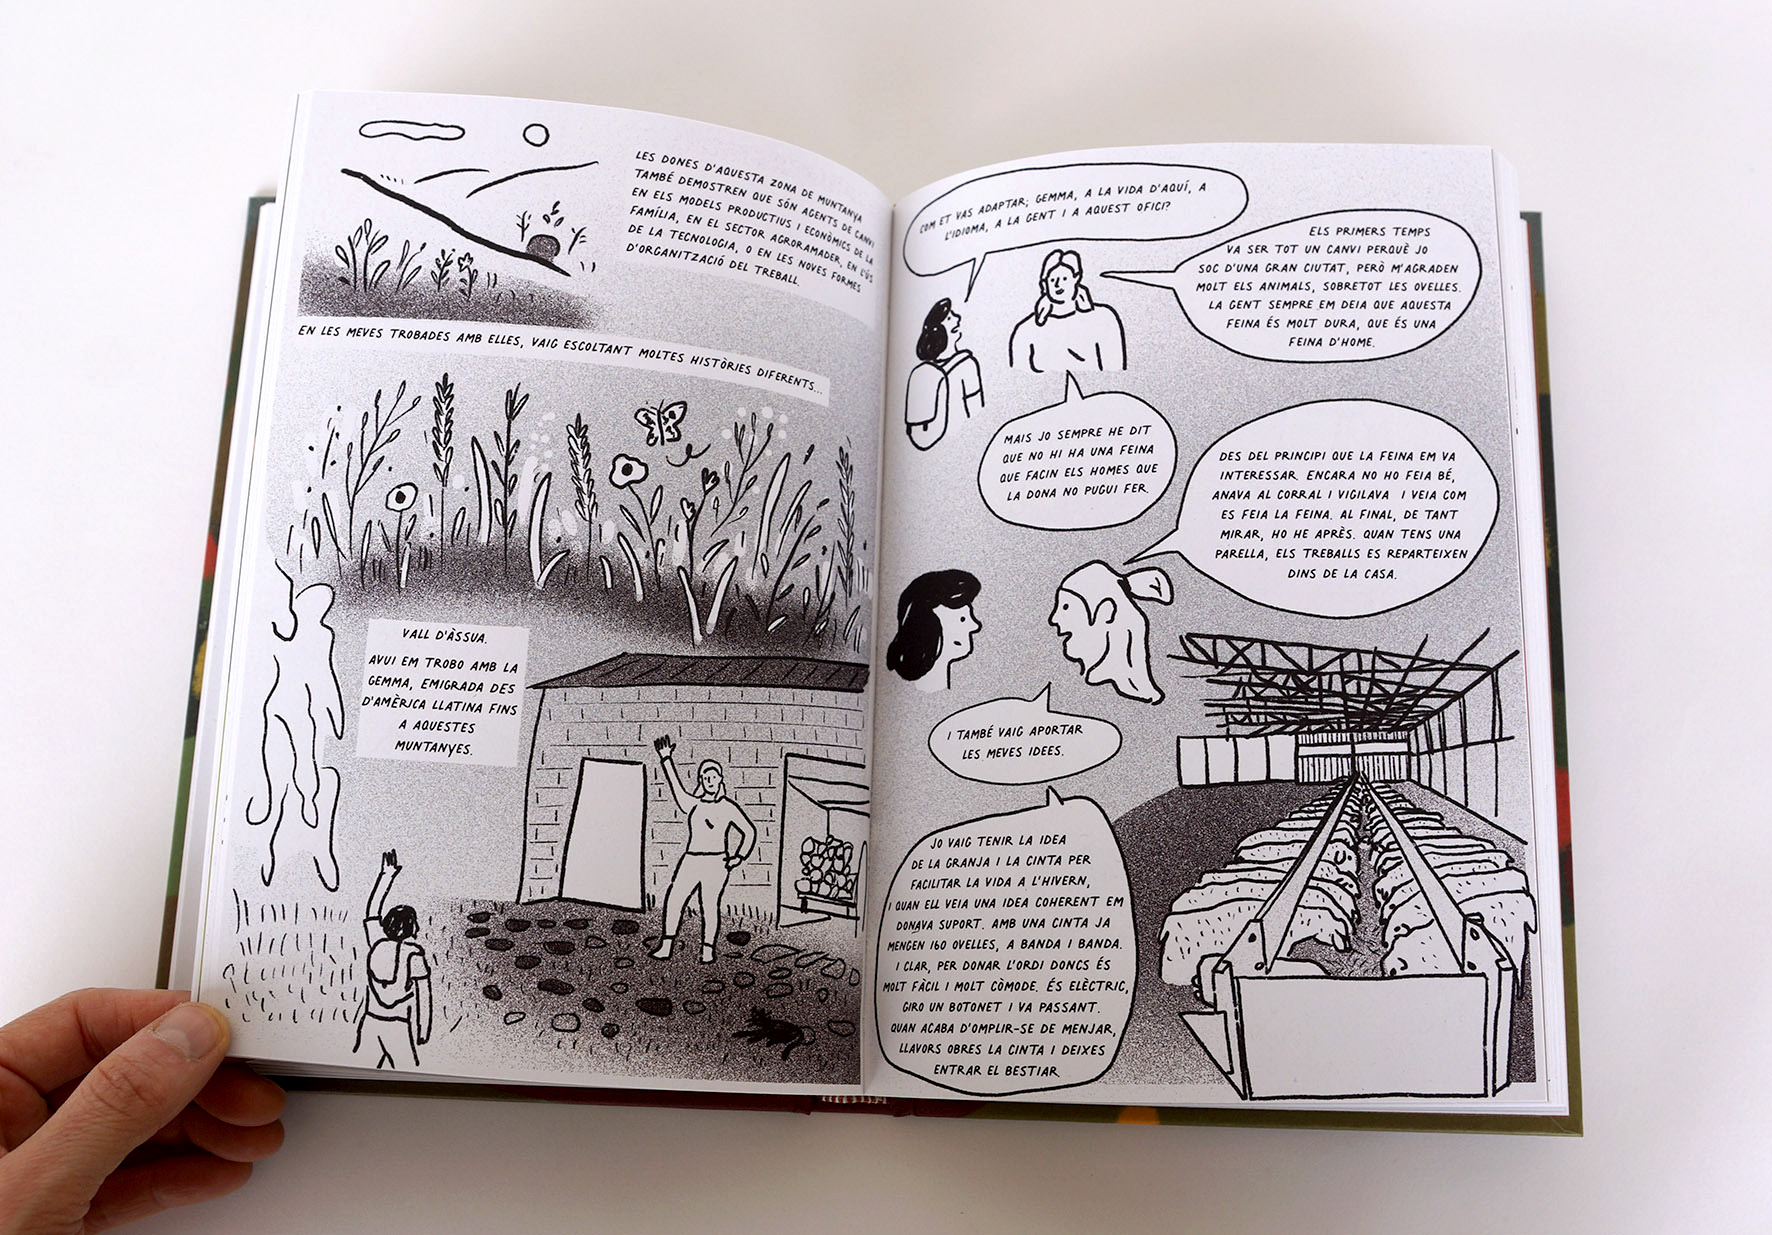 LES DONES D'AQUESTA ZONA DE MUNTANYA
TAMBÉ DEMOSTREN QUE SÓN AGENTS DE CANVI
EN ELS MODELS PRODUCTIUS I ECONÒMICS DE LA
FAMÍLIA, EN EL SECTOR AGRORAMADER, EN L'ÚS
DE LA TECNOLOGIA, O EN LES NOVES FORMES
D'ORGANITZACIÓ DEL TREBALL.
EN LES MEVES TROBADES AMB ELLES, VAIG ESCOLTANT MOLTES HISTÒRIES DIFERENTS...
VALL D'ÀSSUA.
AVUI EM TROBO AMB LA
GEMMA, EMIGRADA DES
D'AMÈRICA LLATINA FINS
A AQUESTES
MUNTANYES.
COM ET VAS ADAPTAR; GEMMA, A LA VIDA D'AQUÍ, A
L'IDIOMA, A LA GENT I A AQUEST OFICI?
ELS PRIMERS TEMPS
VA SER TOT UN CANVI PERQUÈ JO
SOC D'UNA GRAN CIUTAT, PERÒ M'AGRADEN
MOLT ELS ANIMALS, SOBRETOT LES OVELLES.
LA GENT SEMPRE EM DEIA QUE AQUESTA
FEINA ÉS MOLT DURA, QUE ÉS UNA
FEINA D'HOME.
MAIS JO SEMPRE HE DIT
QUE NO HI HA UNA FEINA
QUE FACIN ELS HOMES QUE
LA DONA NO PUGUI FER
DES DEL PRINCIPI QUE LA FEINA EM VA
INTERESSAR. ENCARA NO HO FEIA BÉ,
ANAVA AL CORRAL I VIGILAVA I VEIA COM
ES FEIA LA FEINA. AL FINAL, DE TANT
MIRAR, HO HE APRÈS. QUAN TENS UNA
PARELLA, ELS TREBALLS ES REPARTEIXEN
DINS DE LA CASA.
I TAMBÉ VAIG APORTAR
LES MEVES IDEES.
JO VAIG TENIR LA IDEA
DE LA GRANJA I LA CINTA PER
FACILITAR LA VIDA A L'HIVERN,
I QUAN ELL VEIA UNA IDEA COHERENT EM
DONAVA SUPORT. AMB UNA CINTA JA
MENGEN 160 OVELLES, A BANDA I BANDA.
I CLAR, PER DONAR L'ORDI DONCS ÉS
MOLT FÀCIL I MOLT CÒMODE. ÉS ELÈCTRIC,
GIRO UN BOTONET I VA PASSANT.
QUAN ACABA D'OMPLIR-SE DE MENJAR,
LLAVORS OBRES LA CINTA I DEIXES
ENTRAR EL BESTIAR